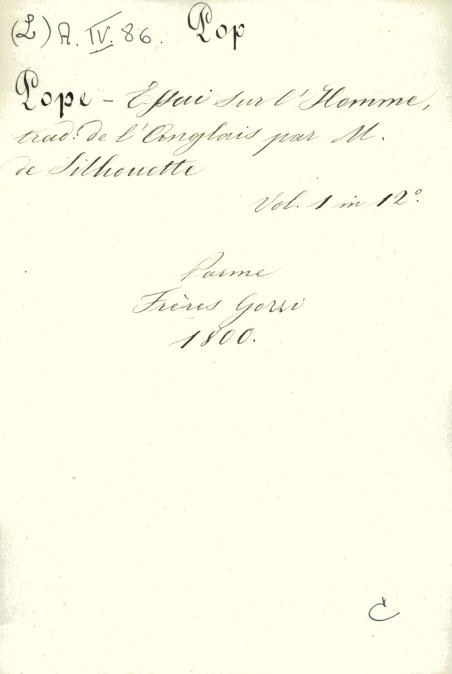 (L) A. IV. 86. Pop
Pope - Essai sur l'Homme,
trad: de l'Anglais par M.
de Silhouette
Vol. 1 in 12º.
Parme
Frères Gozzi
1800.
C